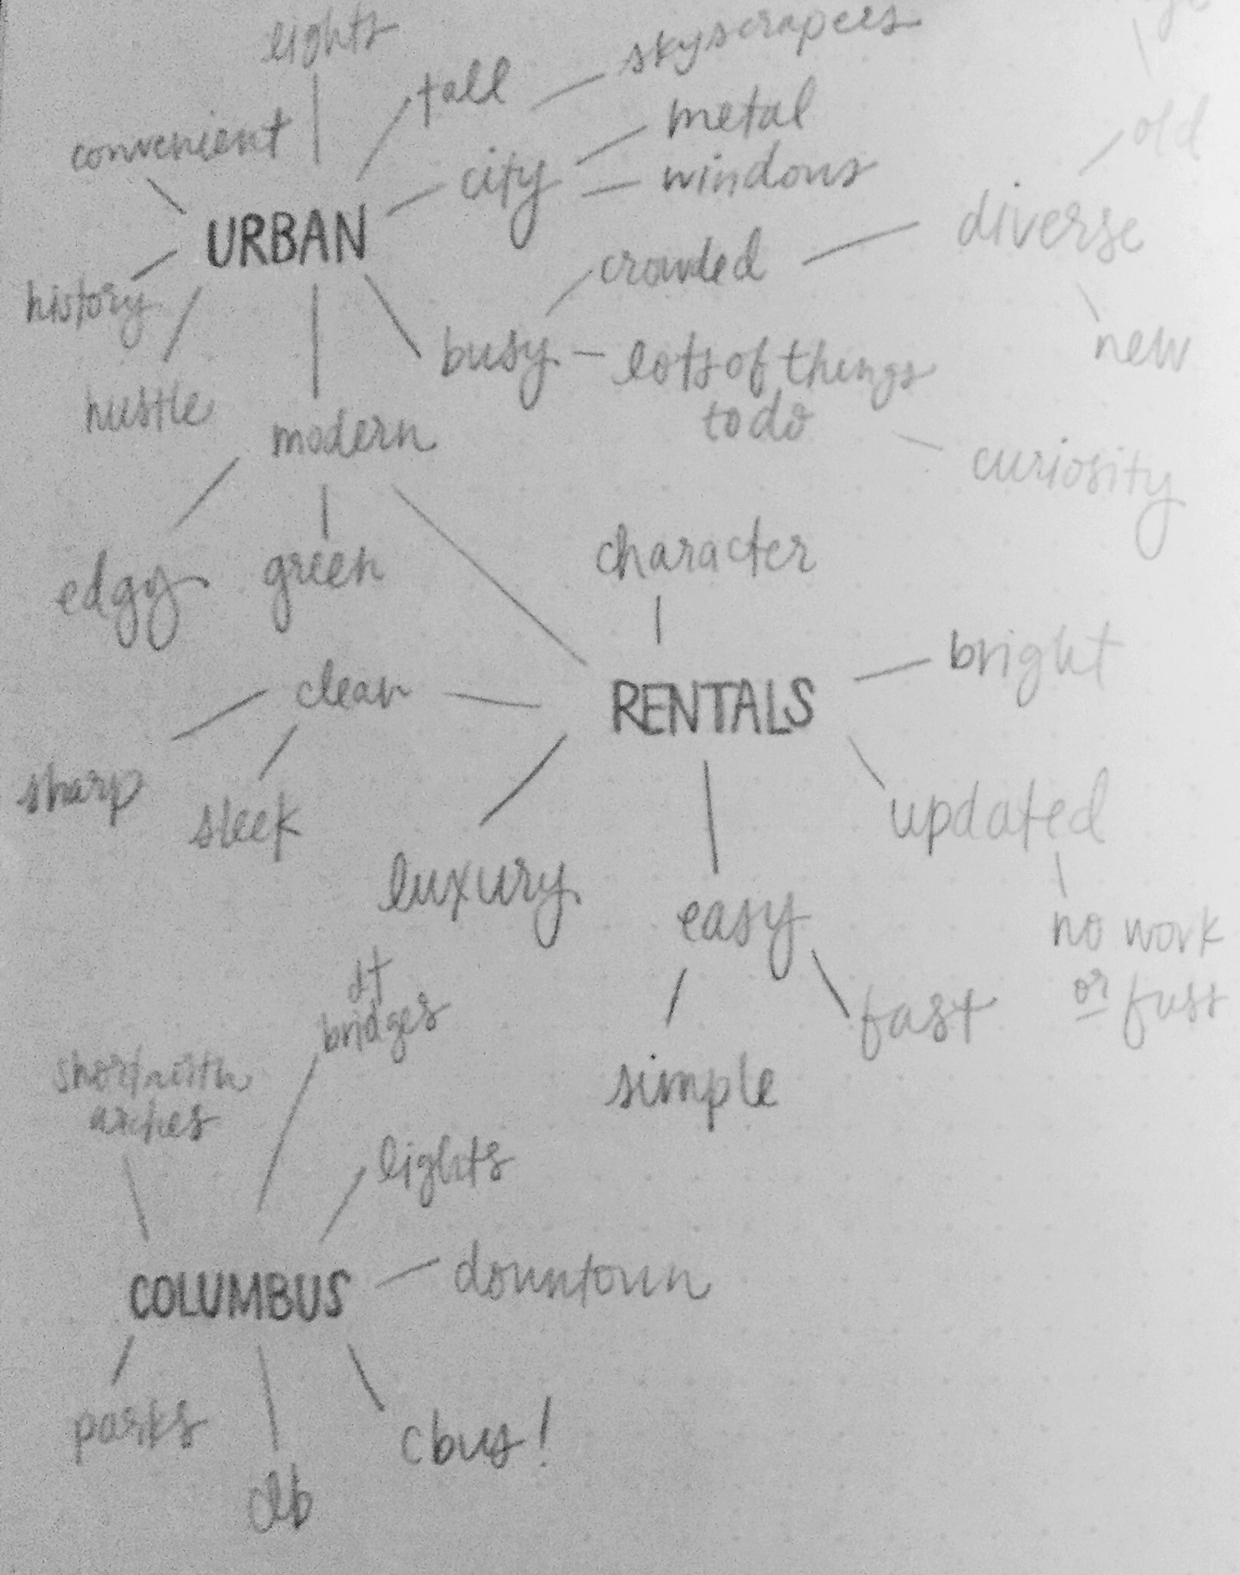 lights
skyscrapers
tall
metal
old
convenient
city
windows
URBAN
diverse
crowded
history
new
busy
lots of things
to do
hustle
modern
curiosity
character
edgy
green
bright
clean
RENTALS
sharp
sleek
updated
luxury
easy
no work
or fuss
dt
bridges
fast
short north
arches
simple
lights
COLUMBUS
downtown
parks
cbus!